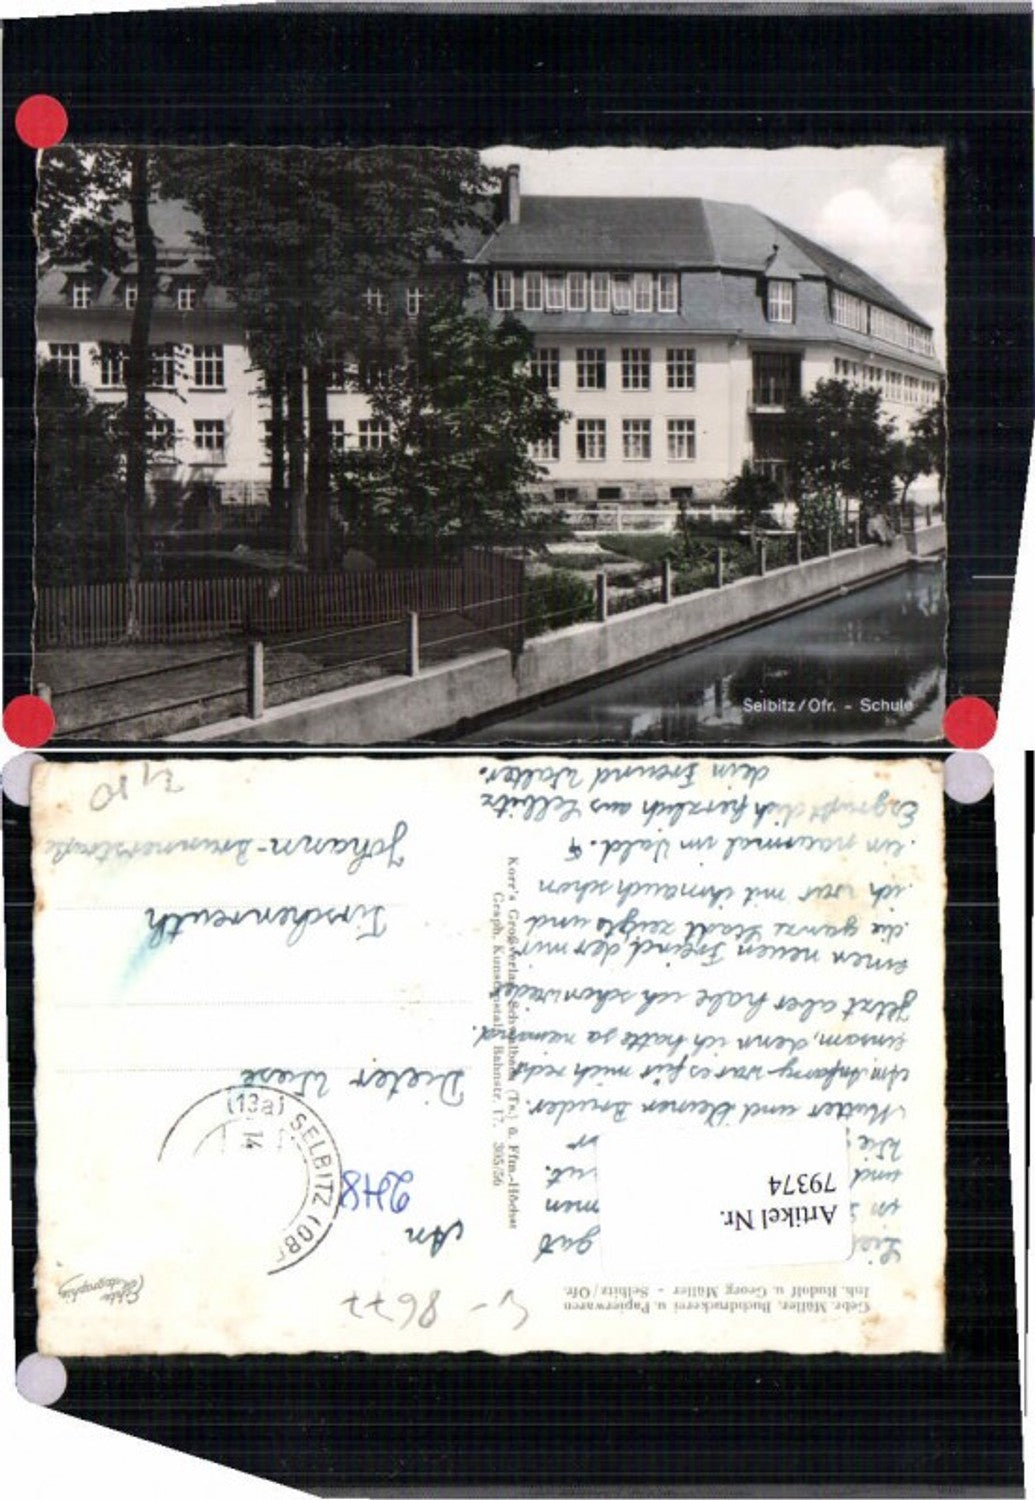 Selbitz/Ofr. - Schule
Gebr. Müller, Buchdruckerei u. Papierwaren
Inh. Rudolf u. Georg Müller - Selbitz/Ofr.
Artikel Nr.
79374
Lie
gut
in
men
und
ut.
Wie
Mutter und Deinen Bruder.
Am Anfang war es für mich recht
einsam, denn ich hatte ja niemand.
Jetzt aber habe ich schon wieder
einen neuen Freund, der mir
die ganze Stadt zeigte und
ich war mit ihm auch schon
ein paarmal im Wald.
Es grüßt dich herzlich aus Selbitz
dein Freund Walter.
Korr's Großverlag Schwalbach (Ts.) & Ffm.-Höchst
Graph. Kunstanstalt, Bahnstr. 17. 305/56
8677
Echte
Photographie
An
248
(13a) SELBITZ (OB
14
Dieter Wese
Tirschenreuth
Johann-Brunnerstraße